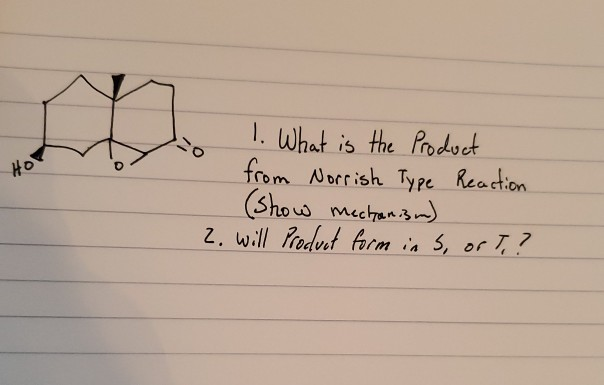 1. What is the Product
from Norrish Type Reaction
(Show mechanism)
2. Will Product form in S, or T, ?
HO
O
O